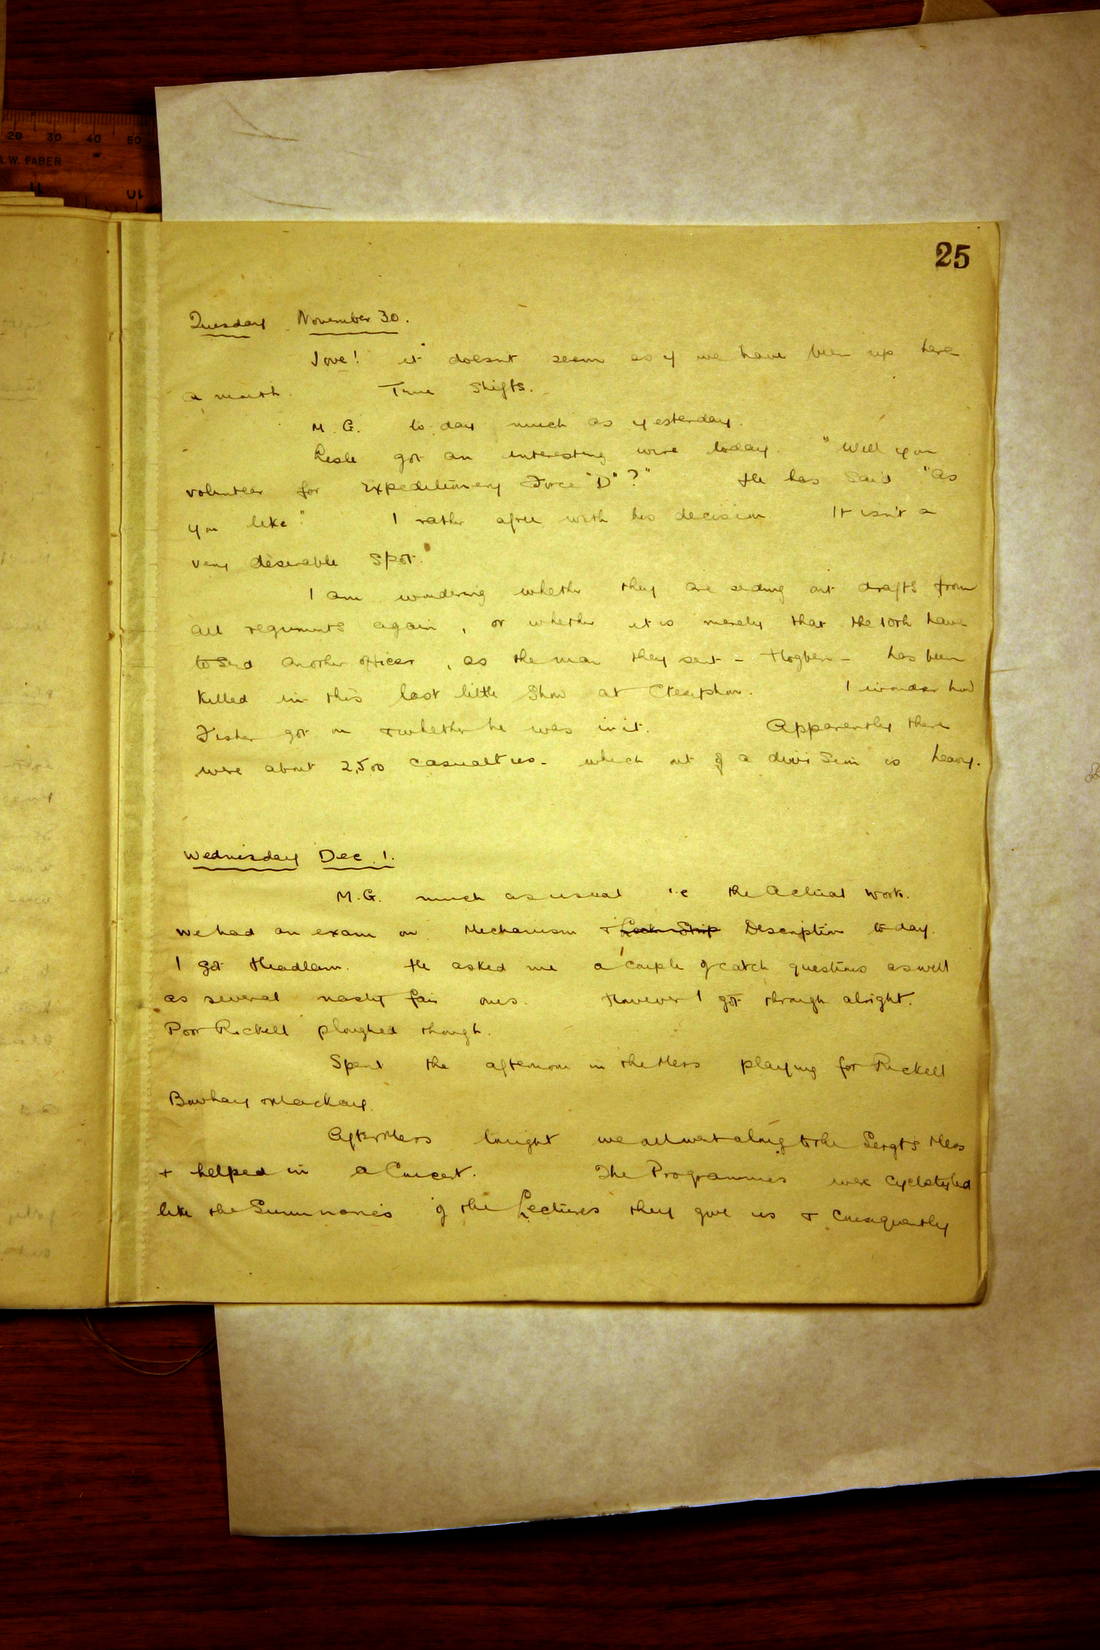 20 30 40 50
A.W. FABER
11 10
25
Tuesday November 30.
Jove! it doesnt seem as if we have been up here
a month. Time Shifts.
M. G. to day much as yesterday.
Leslie got an interesting wire today "Will you
volunteer for Expeditionary Force "D"?" He has said "As
you like" I rather agree with his decision It isn't a
very desirable spot.
I am wondering whether they are sending out drafts from
all regiments again, or whether it is merely that the 10th have
to send another officer, as the man they sent - Hogben - has been
killed in this last little Show at Ctesiphon. I wonder how
Fisher got on & whether he was in it. Apparently there
were about 2,500 casualties - which out of a division is heavy.
Wednesday Dec. 1.
M.G. much as usual i.e the Actual work.
We had an exam on Mechanism & Description today.
I got Headlam. He asked me a couple of catch questions as well
as several nasty fair ones. However I got through alright.
Poor Rickett ploughed though.
Spent the afternoon in the Mess playing for Rickett
Bowhay & Mackay.
After Mess tonight we all went along to the Sergts Mess
& helped in a Concert. The Programmes were cyclostyled
like the Summaries of the Lectures they give us & consequently